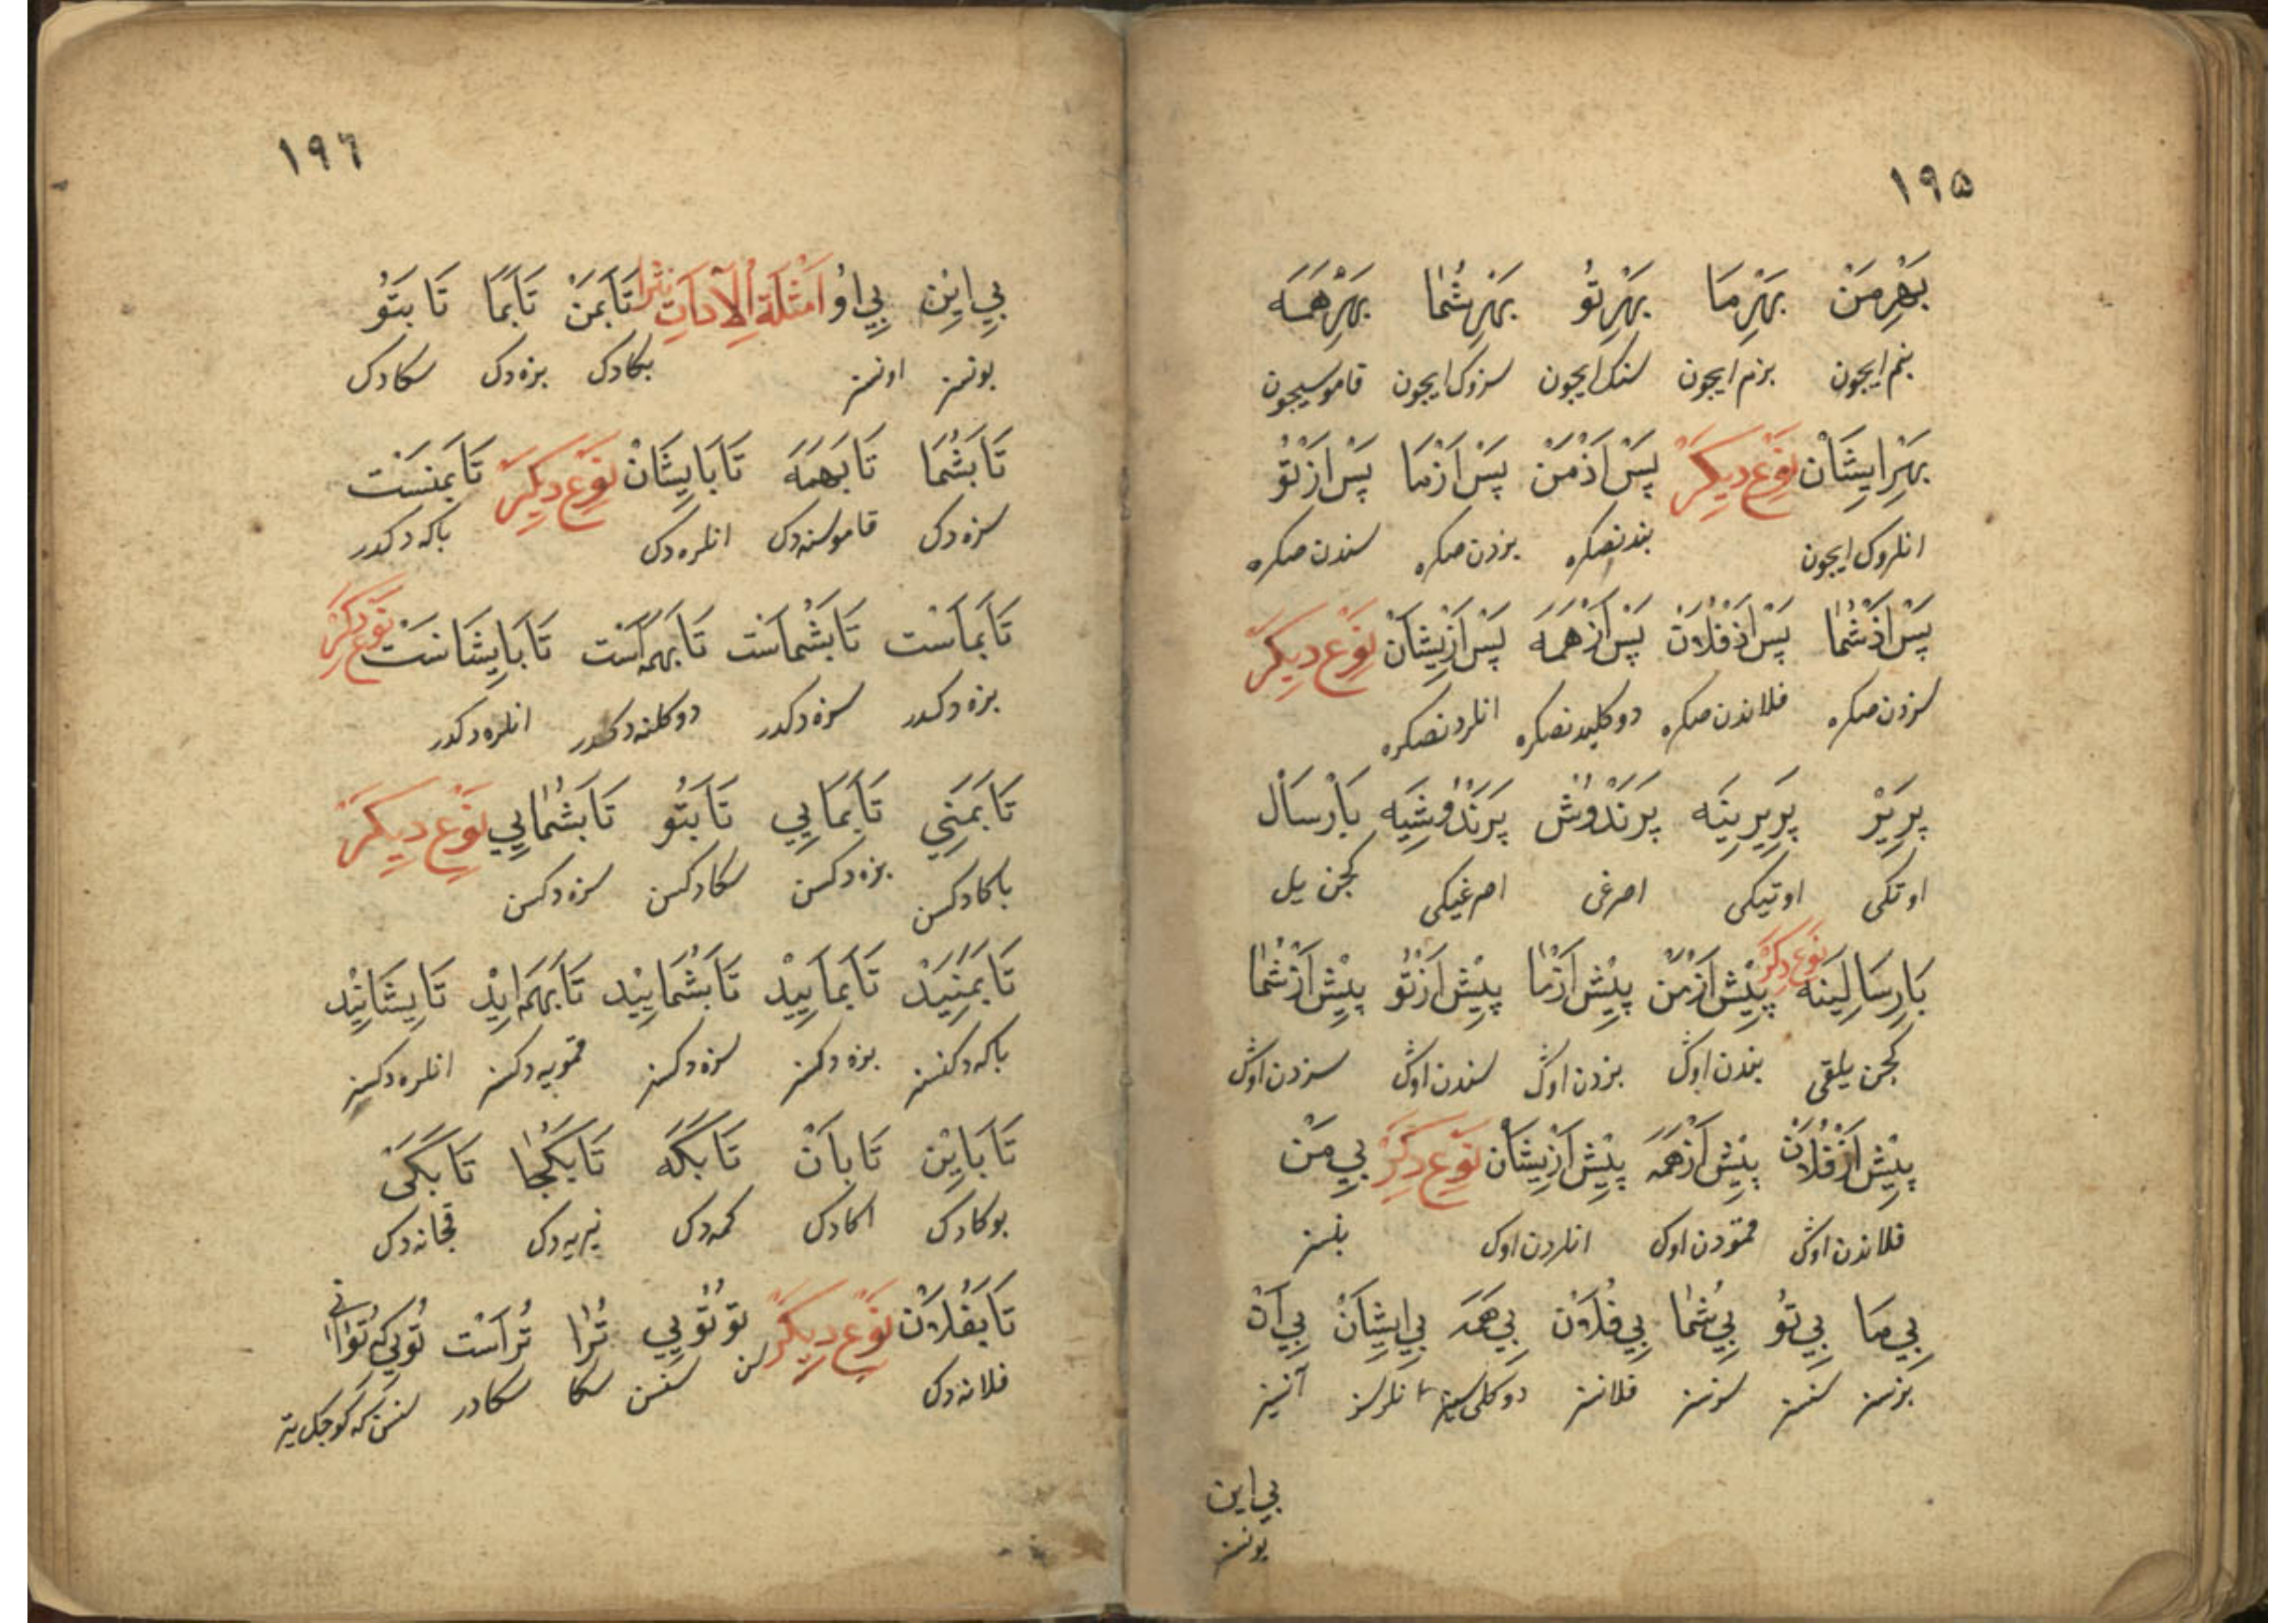 ١٩٥
بَهْرِمَنْ بَهْرِمَا بَهْرِتُو بَهْرِشُمٰا بَهْرِهَمَه
بنم ایچون بزم ایچون سنک ایچون سزوک ایچون قاموسیچون
بَهْرِایشَانْ نَوْعِ دِیکَرْ پَسْ اَزْمَنْ پَسْ اَزْمَا پَسْ اَزْتُو
انلروک ایچون بندنصکره بزدن صکره سندن صکره
پَسْ اَزْشُمٰا پَسْ اَزْفُلَانْ پَسْ اَزْهَمَه پَسْ اَزِیشَانْ نَوْعِ دِیکَرْ
سزدن صکره فلاندن صکره دوکلیدنصکره انلردنصکره
پَرِیرْ پَرِیرِینَه پَرَنْدُوشْ پَرَنْدُوشِیَه پَارْسَالْ
اوتکی اوتیکی کچن ییل
پَارِسَالِینَه نَوْعِ دِکَرْ پِیْش اَزْمَنْ پِیْش اَزْمَا پِیْش اَزْتُو پِیْش اَزْشُمٰا
کچن ییلقی بندن اوک بزدن اوک سندن اوک سزدن اوک
پِیْش اَزْفُلَانْ پِیْش اَزْهَمَه پِیْش اَزِیشَانْ نَوْعِ دِکَرْ بِی مَنْ
فلاندن اوک قمودن اوک انلردن اوک بنسز
بِی مَا بِی تُو بِی شُمٰا بِی فُلَانْ بِی هَمَه بِی اِیشَانْ بِی آنْ
بزسز سنسز سزسز فلانسز دوکلی سز انلرسز آنسز
بی این
بونسز
١٩٦
بِی اِیْن بِی اُو اَمْثِلَةُ الْاَدَاتِ نَثْرًا تَابَمَنْ تَابَمَا تَابَتُو
بونسز اونسز بکادک بزه دک سکادک
تَابَشُمَا تَابَهَمَه تَابَایشَانْ نَوْعِ دِیکَرْ تَابَمَنَسْت
سزه دک قاموسنه دک انلره دک باکه دکدر
تَابَمَاسْت تَابَشُمَاسْت تَابَهَمَه اَسْت تَابَایشَانَسْت نَوْعِ دِکَرْ
بزه دکدر سزه دکدر دوکلنه دکدر انلره دکدر
تَابَمَنِی تَابَمَایِی تَابَتُو تَابَشُمٰایِی نَوْعِ دِیکَرْ
باکادکسن بزه دکسن سکادکسن سزه دکسن
تَابَمَنِیدْ تَابَمَایِیدْ تَابَشُمَایِیدْ تَابَهَمَه اِیدْ تَایشَانِیدْ
باکه دکسز بزه دکسز سزه دکسز قمویه دکسز انلره دکسز
تَابَایْن تَابَآنْ تَابَکَه تَابَکُجٰا تَابَکَیْ
بوکادک اکادک کمه دک نیریه دک قچانه دک
تَابَفُلَانْ نَوْعِ دِیکَرْ تُو تُویِی تُرَا تُرَاسْت
فلانه دک سن سنسن سکا سکادر سنسن که کوجک یتر